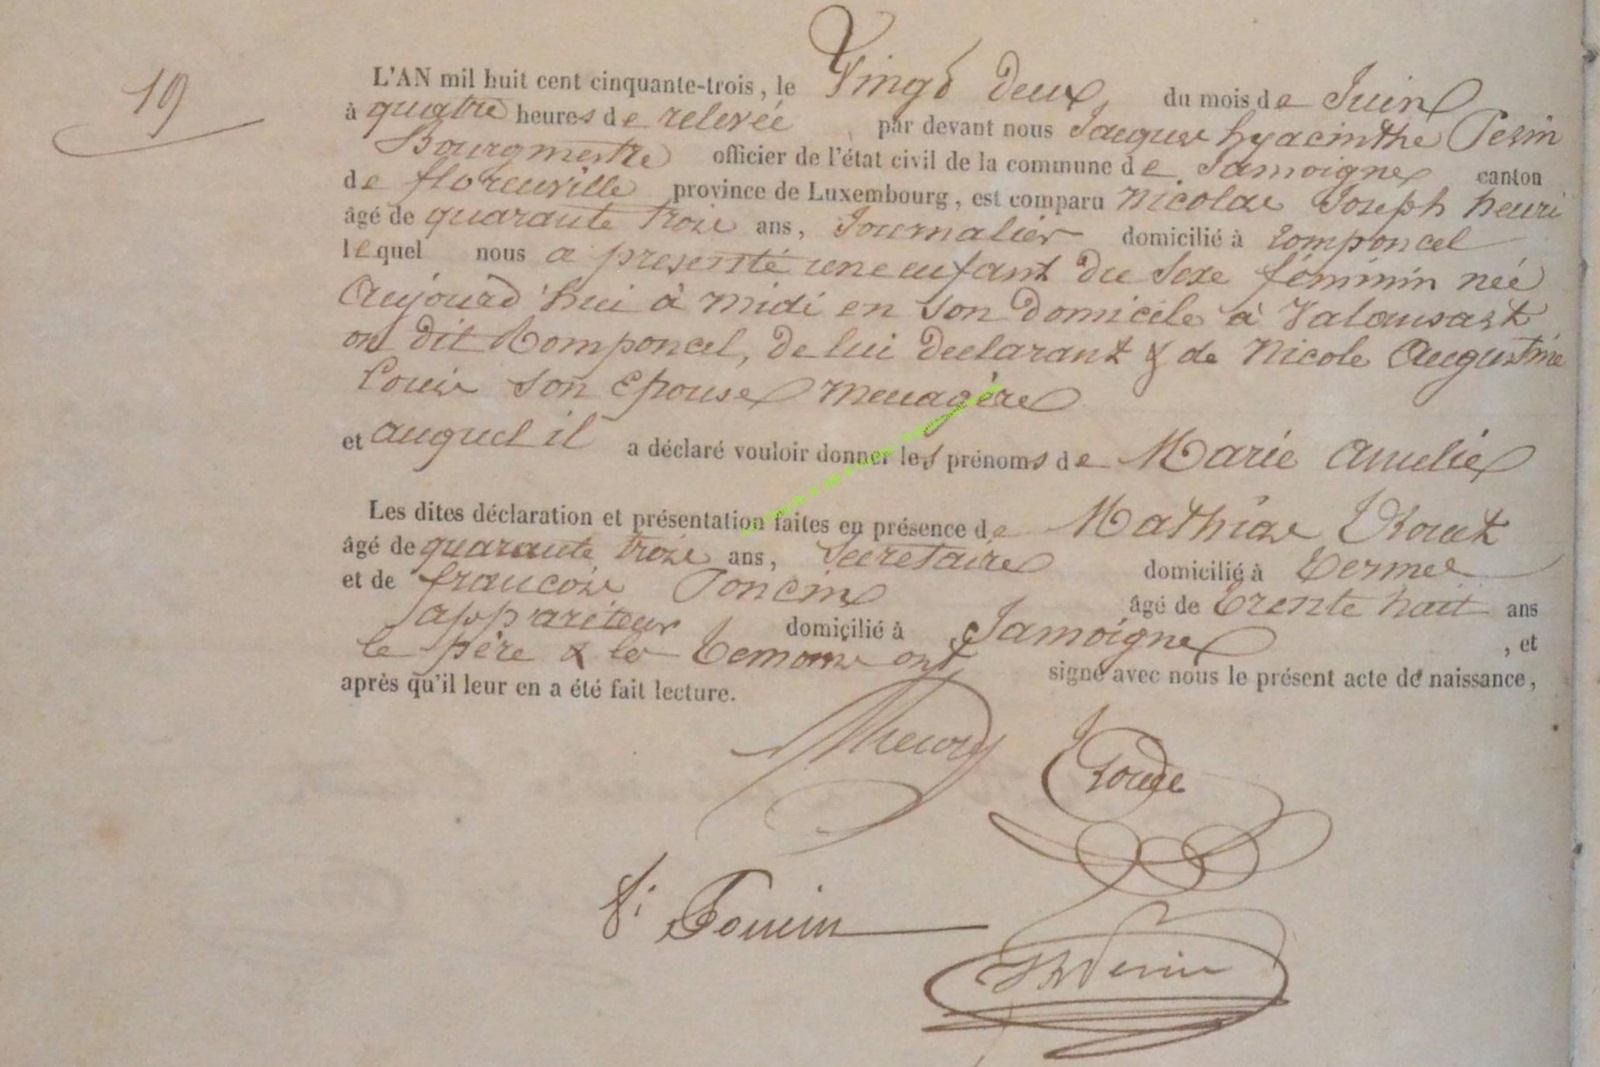 19
L'AN mil huit cent cinquante-trois, le Vingt deux du mois de Juin
à quatre heures de relevée par devant nous Jacques hyacinthe Perin
Bourgmestre officier de l'état civil de la commune de Jamoigne canton
de florenville province de Luxembourg, est comparu Nicolas Joseph henri
âgé de quarante trois ans, Journalier domicilié à romponcel
lequel nous a presenté une enfant du sexe féminin née
Aujourd'hui à midi en son domicile à Valansart
on dit Romponcel, de lui declarant & de Nicole Augustine
Louis son Epouse menagère
et auquel il a déclaré vouloir donner les prénoms de Marie Amelie
Les dites déclaration et présentation faites en présence de Mathias
âgé de quarante trois ans, Secretaire domicilié à Termes
et de francois Poncin âgé de trente huit ans
appariteur domicilié à Jamoigne, et
le père & les temoins ont signé avec nous le présent acte de naissance,
après qu'il leur en a été fait lecture.
Henry
Poncin
Perin